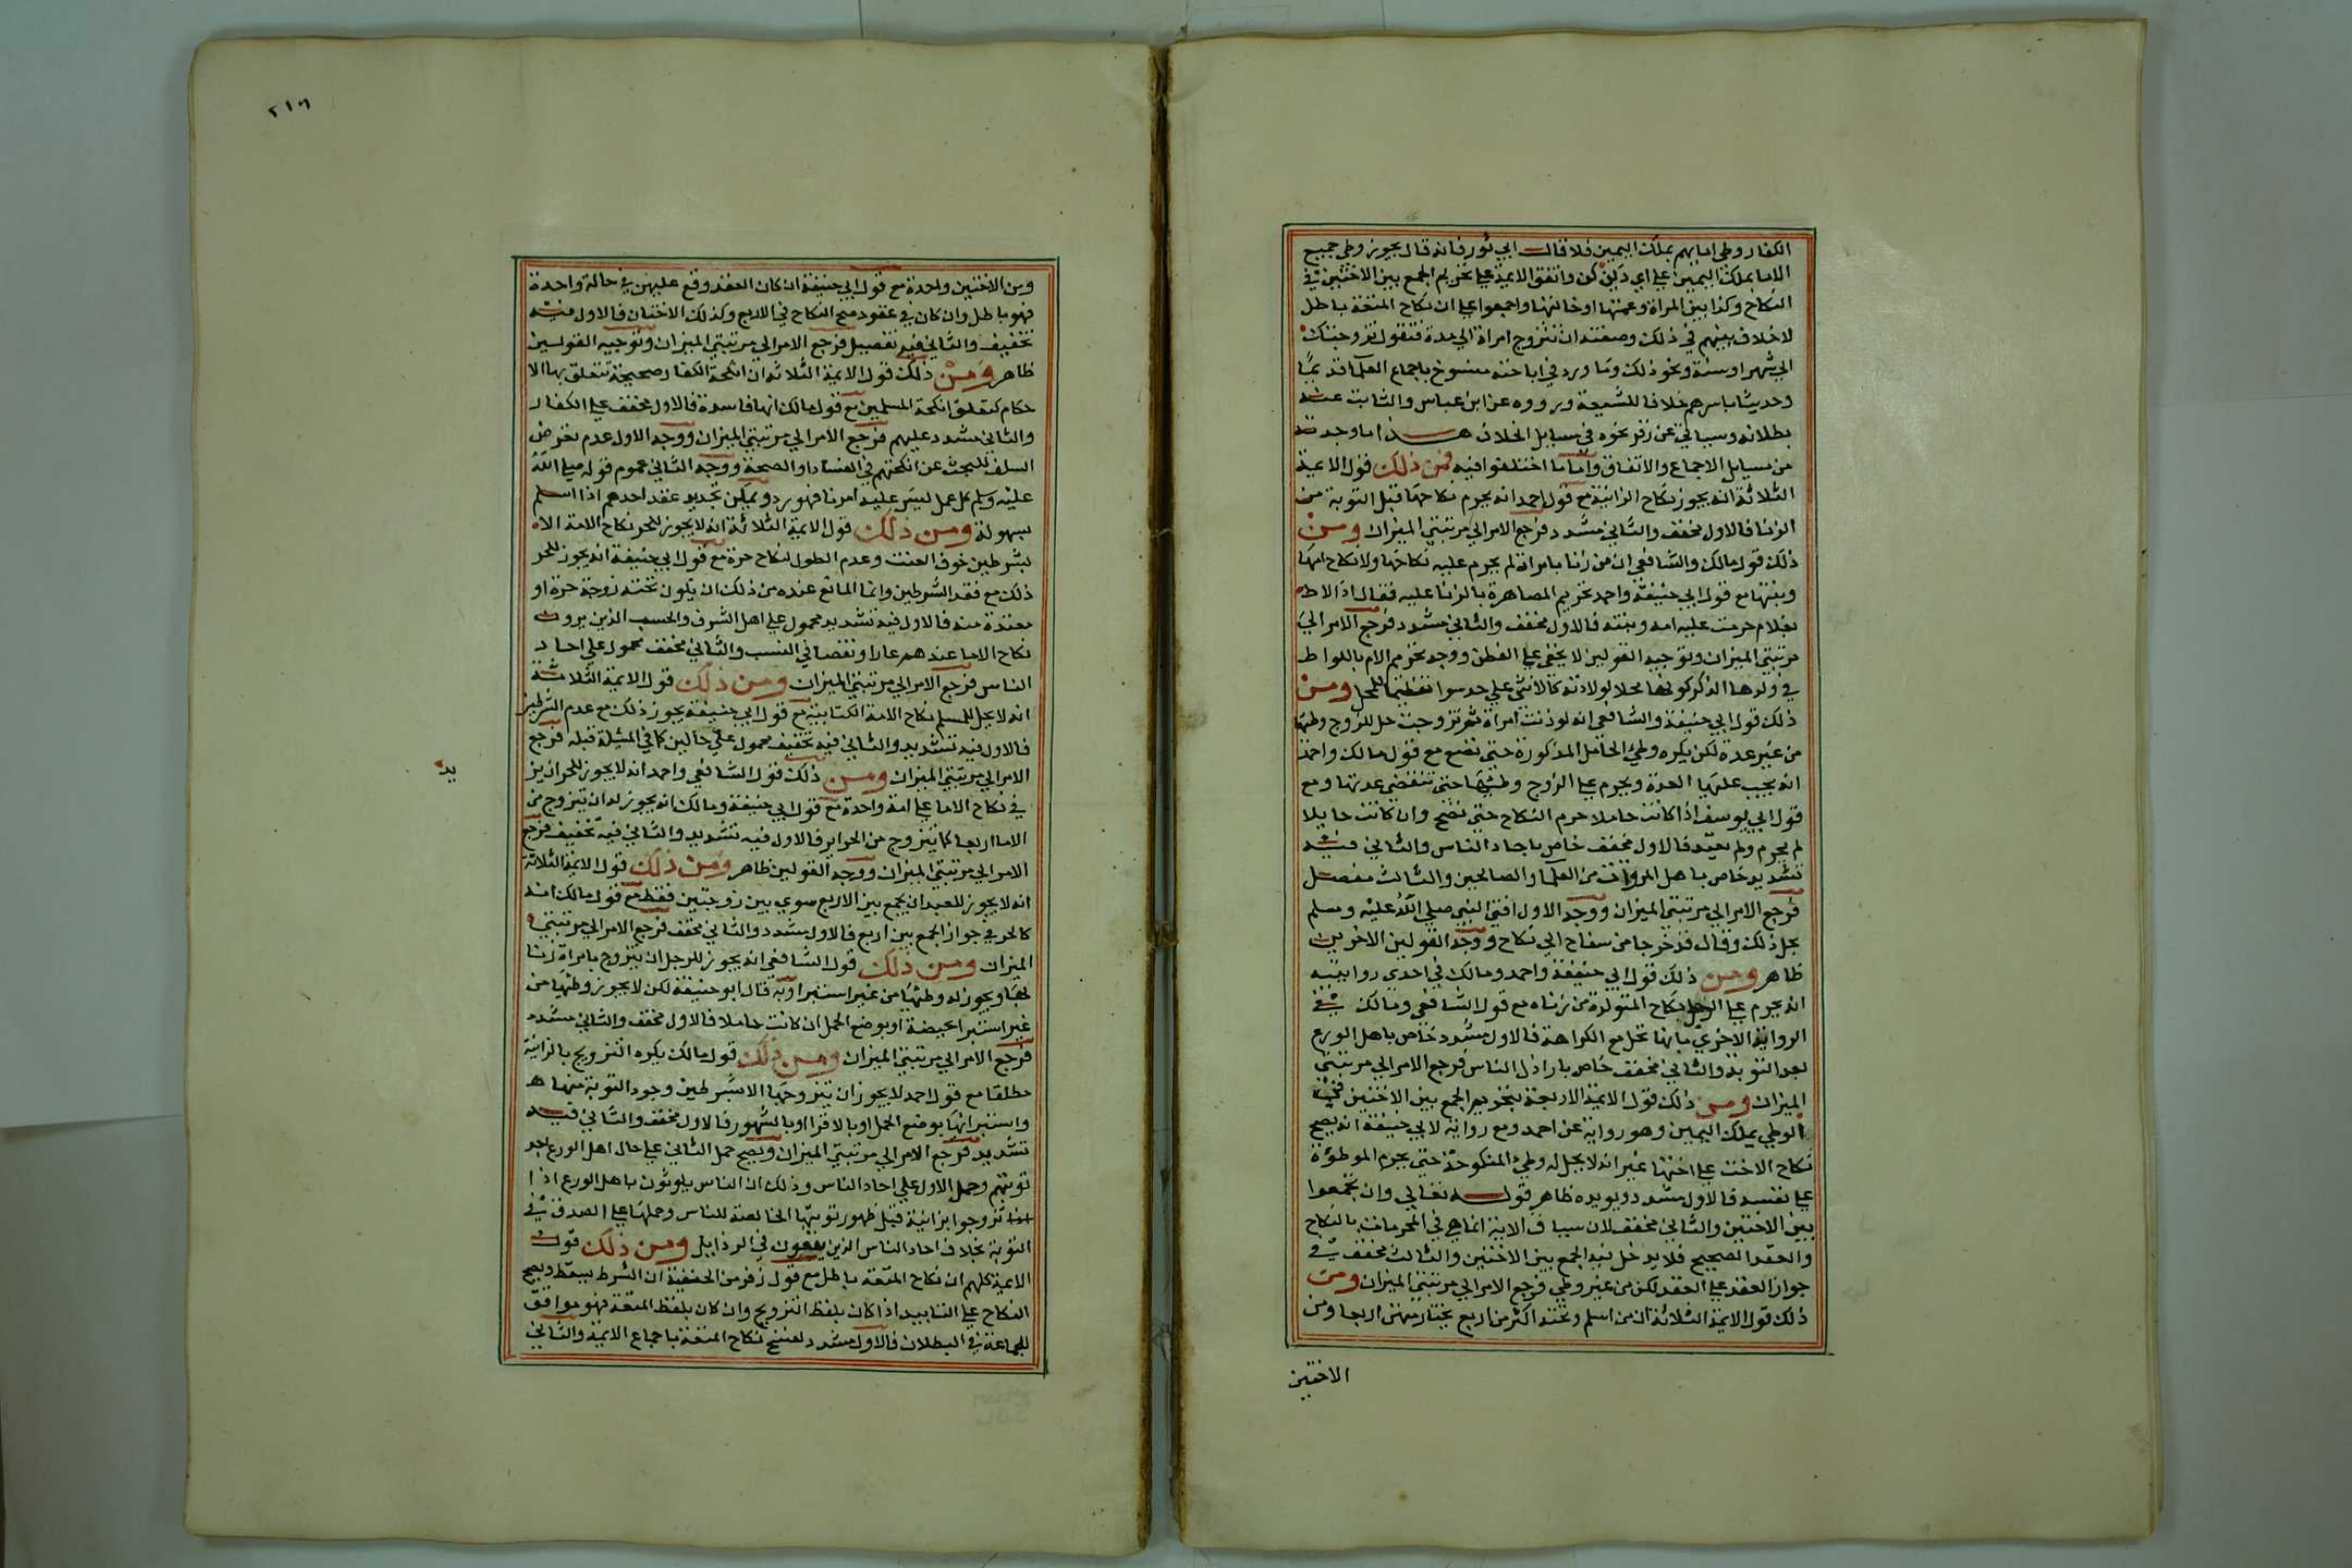 الكفار وطى امايهم بملك اليمين فلا قالــ ابي ثور فانه قال يجوز وطي جميع
الاما بملك اليمين علي اي دين كن واتفق الايمة علي تحريم الجمع بين الاختين في
النكاح وكذا بين المراة وعمتها او خالتها واجمعوا علي ان نكاح المتعة باطل
لاخلاف بينهم في ذلك وصفته ان يتزوج امراة الي مدة فتقول تزوجتك
الي شهر او سنة ونحو ذلك وما ورد في اباحته منسوخ باجماع العلما قديمًا
وحديثا باسرهم خلافا للشيعة ورووه عن ابن عباس والثابت عنه
بطلانه وسياتي عن زفر نحوه في مسايل الخلاف هــذا ما وجدته
من مسايل الاجماع والاتفاق واما ما اختلفوا فيه فمن ذلك قول الايمة
الثلاثة انه يجوز نكاح الزانية مع قول احمد انه يحرم نكاحها قبل التوبة من
الزنا فالاول مخفف والثاني مشدد فرجع الامر الي مرتبتي الميزان ومن
ذلك قول مالك والشافعي ان من زنا بامراة لم يحرم عليه نكاحها ولا نكاح امها
وبنتها مع قول ابي حنيفة واحمد تحريم المصاهرة بالزنا عليه فقال اذا لاط
بغلام حرمت عليه امه وبنته فالاول مخفف والثاني مشدد فرجع الامر الي
مرتبتي الميزان وتوجيه القولين لا يخفى علي الفطن ووجه تحريم الام باللواط
في ولدها الذكر كونها محلا لولادته كالانثى علي حد سوا تغليظا للمحل ومن
ذلك قول ابي حنيفة والشافعي انه لو زنت امراة ثم تزوجت حل للزوج وطيها
من غير عدة لكن يكره وطي الحامل المذكورة حتى تضع مع قول مالك واحمد
انه يجب عليها العدة ويحرم علي الزوج وطيها حتى تنقضي عدتها ومع
قول ابي يوسف اذا كانت حاملا حرم النكاح حتى تضع وان كانت حايلا
لم يحرم ولم تعتد فالاول مخفف خاص باحاد الناس والثاني فيه
تشديد خاص باهل المروات من العلما والصالحين والثالث مفصل
فرجع الامر الي مرتبتي الميزان ووجه الاول افتى النبي صلي الله عليه وسلم
بحل ذلك وقال قد خرجا من سفاح الي نكاح ووجه القولين الاخرين
ظاهر ومن ذلك قول ابي حنيفة واحمد ومالك في احدى روايتيه
انه يحرم علي الرجل نكاح المتولدة من زناه مع قول الشافعي ومالك في
الرواية الاخرى بانها تحل مع الكراهة فالاول مشدد خاص باهل الورع
بعد التوبة والثاني مخفف خاص باراذل الناس فرجع الامر الي مرتبتي
الميزان ومن ذلك قول الايمة الاربعة بتحريم الجمع بين الاختين في
الوطي بملك اليمين وهو رواية عن احمد ومع رواية لابي حنيفة انه يصح
نكاح الاخت علي اختها غير انه لا يحل له وطي المنكوحة حتى يحرم الموطوة
علي نفسه فالاول مشدد ويويده ظاهر قولــه تعالي وان تجمعوا
بين الاختين والثاني مخفف لان سياق الاية انما هي في المحرمات بالنكاح
والعقد الصحيح فلا يدخل فيه الجمع بين الاختين والثالث مخفف في
جواز العقد علي العقد لكن من غير وطي فرجع الامر الي مرتبتي الميزان ومن
ذلك قول الايمة الثلاثة ان من اسلم وتحته اكثر من اربع يختار منهن اربعا ومن
الاختين
٢١٦
ومن الاختين واحدة مع قول ابي حنيفة ان كان العقد وقع عليهن في حالة واحدة
فهو باطل وان كان في عقود صح النكاح في الاربع وكذلك الاختان فالاول فيه
تخفيف والثاني فيه تفصيل فرجع الامر الي مرتبتي الميزان وتوجيه القولين
ظاهر ومن ذلك قول الايمة الثلاثه ان انكحة الكفار صحيحة تتعلق بها الا
حكام كتعلق انكحة المسلمين مع قول مالك انها فاسدة فالاول مخفف علي الكفار
والثاني مشدد عليهم فرجع الامر الي مرتبتي الميزان ووجه الاول عدم تعرض
السلف للبحث عن انكحتهم في الفساد او الصحة ووجه الثاني عموم قوله صلي الله
عليه وسلم كل عمل ليس عليه امرنا فهو رد ويمكن تجديد عقد احدهم اذا اسلم
بسهولة ومن ذلك قول الايمة الثلاثة انه لا يجوز للحر نكاح الامة الا
بشرطين خوف العنت وعدم الطول لنكاح حرة مع قول ابي حنيفة انه يجوز للحر
ذلك مع فقد الشرطين وانما المانع عنده من ذلك ان يكون تحته زوجة حرة او
معتدة منه فالاول فيه تشديد محمول علي اهل الشرف والحسب الذين يرون
نكاح الاما عندهم عارا ونقصا في النسب والثاني مخفف محمول علي احاد
الناس فرجع الامر الي مرتبتي الميزان ومن ذلك قول الايمة الثلاثة
انه لا يحل للمسلم نكاح الامة الكتابية مع قول ابي حنيفة يجوز ذلك مع عدم الشرطين
فالاول فيه تشديد والثاني فيه تخفيف محمول علي حالين كما في المسئلة قبله فرجع
الامر الي مرتبتي الميزان ومن ذلك قول الشافعي واحمد انه لا يجوز للحر ان يز
يد
في نكاح الاما علي امة واحدة مع قول ابي حنيفة ومالك انه يجوز له ان يتزوج من
الاما اربعا كما يتزوج من الحراير فالاول فيه تشديد والثاني فيه تخفيف فرجع
الامر الي مرتبتي الميزان ووجه القولين ظاهر ومن ذلك قول الايمة الثلاثة
انه لا يجوز للعبد ان يجمع بين الاربع سوي بين زوجتين فقط مع قول مالك انه
كالحر في جواز الجمع بين اربع فالاول مشدد والثاني مخفف فرجع الامر الي مرتبتي
الميزان ومن ذلك قول الشافعي انه يجوز للرجل ان يتزوج بامراة زنا
بها ويجوز له وطئها من غير استبرا وبه قال ابو حنيفة لكن لا يجوز وطئها من
غير استبرا بحيضة او بوضع الحمل ان كانت حاملا فالاول مخفف والثاني مشدد
فرجع الامر الي مرتبتي الميزان ومن ذلك قول مالك يكره التزويج بالزانية
مطلقا مع قول احمد لا يجوز ان يتزوجها الا بشرطين وجود التوبة منها
واستبرائها بوضع الحمل او بالاقرا او بالشهور فالاول مخفف والثاني فيه
تشديد فرجع الامر الي مرتبتي الميزان ويصح حمل الثاني علي حال اهل الورع بعد
توبتهم وحمل الاول علي احاد الناس وذلك ان الناس يلوثون باهل الورع اذا
تزوجوا بزانية قبل ظهور توبتها الخالصة للناس وحملها علي الصدق في
التوبة بخلاف احاد الناس الذين يقعون في الرذايل ومن ذلك قول
الايمة كلهم ان نكاح المتعة باطل مع قول زفر من الحنفية ان الشرط يسقط ويصح
النكاح علي التابيد اذا كان بلفظ التزويج وان كان بلفظ المتعة فهو موافق
للجماعة في البطلان فالاول مشدد لفسخ نكاح المتعة باجماع الايمة والثاني